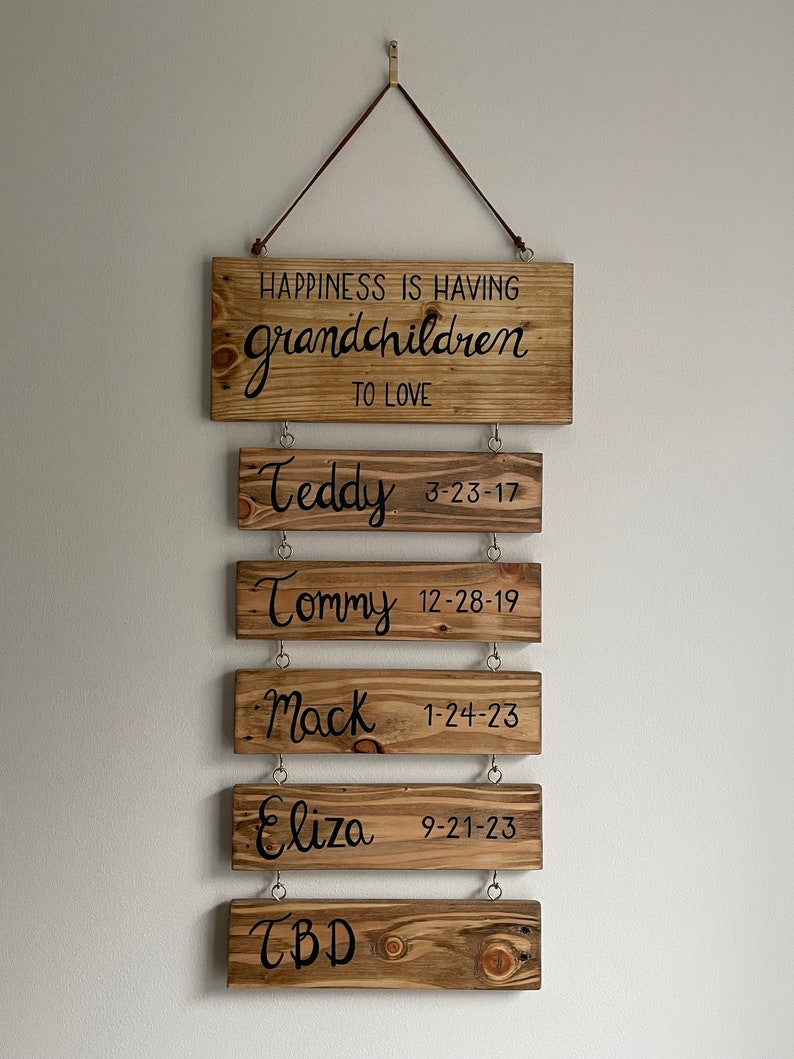 HAPPINESS IS HAVING
grandchildren
TO LOVE
Teddy 3-23-17
Tommy 12-28-19
Mack 1-24-23
Eliza 9-21-23
TBD